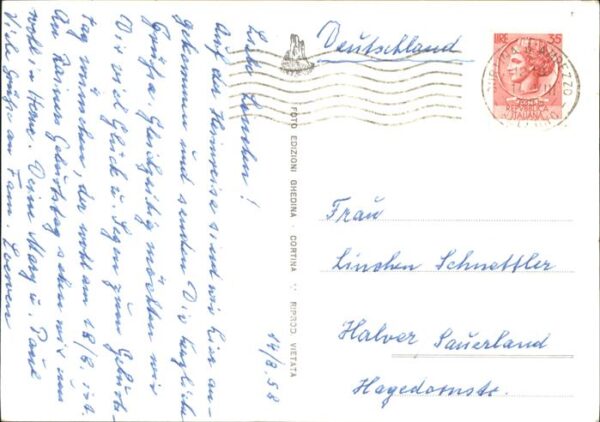 14/8.58
Liebe Linchen!
Auf der Heimreise sind wir hier an-
gekommen und senden Dir herzliche
Grüße. Gleichzeitig möchten wir
Dir viel Glück u. Segen zum Geburts-
tag wünschen, der wohl am 18/8. ist.
Am Rainer Geburtstag sehen wir uns
wohl in Hause. Deine Marg u. Paul
Viele Grüße an Fam. Loewen
FOTO EDIZIONI GHEDINA - CORTINA - V. RIPROD VIETATA
Deutschland
LIRE 35
REPVBBLICA
ITALIANA
CORTINA D'AMPEZZO
Frau
Linchen Schnettler
Halver Sauerland
Hagedornstr.